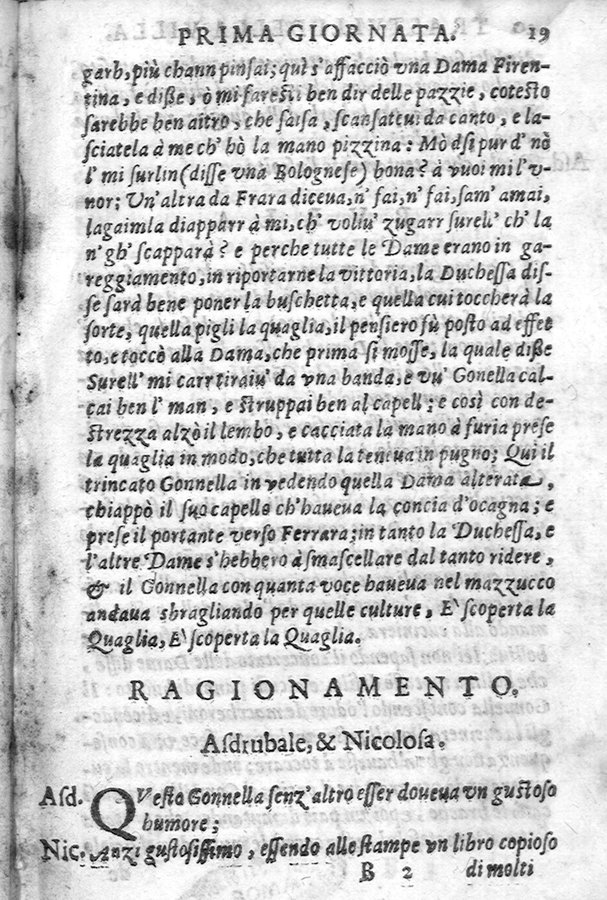 PRIMA GIORNATA. 19
garb, più chann pinsai; quì s'affacciò vna Dama Firen-
tina, e diße, ò mi faresti ben dir delle pazzie, cotesto
sarebbe ben altro, che salsa, scansateui da canto, e la-
sciatela à me ch' hò la mano pizzina: Mò dsi pur d' nò
l' mi surlin (disse vna Bolognese) bona? à vuoi mi l'v-
nor; Vn'altra da Frara diceua, n' fai, n' fai, sam' amai,
lagaimla diapparr à mi, ch' voliu' zugarr surell' ch' la
n' gh' scapparà? e perche tutte le Dame erano in ga-
reggiamento, in riportarne la vittoria, la Duchessa dis-
se sarà bene poner la buschetta, e quella cui toccherà la
sorte, quella pigli la quaglia, il pensiero fù posto ad effet
to, e toccò alla Dama, che prima si mosse, la quale diße
Surell' mi carr tiraiu' da vna banda, e vu' Gonella cal-
çai ben l' man, e struppai ben al capell; e così con de-
strezza alzò il lembo, e cacciata la mano à furia prese
la quaglia in modo, che tutta la teneua in pugno; Qui il
trincato Gonnella in vedendo quella Dama alterata,
chiappò il suo capello ch'haueua la concia d'ocagna; e
prese il portante verso Ferrara; in tanto la Duchessa, e
l'altre Dame s'hebbero à smascellare dal tanto ridere,
& il Gonnella con quanta voce haueua nel mazzucco
andaua sbragliando per quelle culture, E' scoperta la
Quaglia, E' scoperta la Quaglia.
RAGIONAMENTO.
Asdrubale, & Nicolosa.
Asd. QVesto Gonnella senz'altro esser doueua vn gustoso
humore;
Nic. Anzi gustosissimo, essendo alle stampe vn libro copioso
B 2 di molti